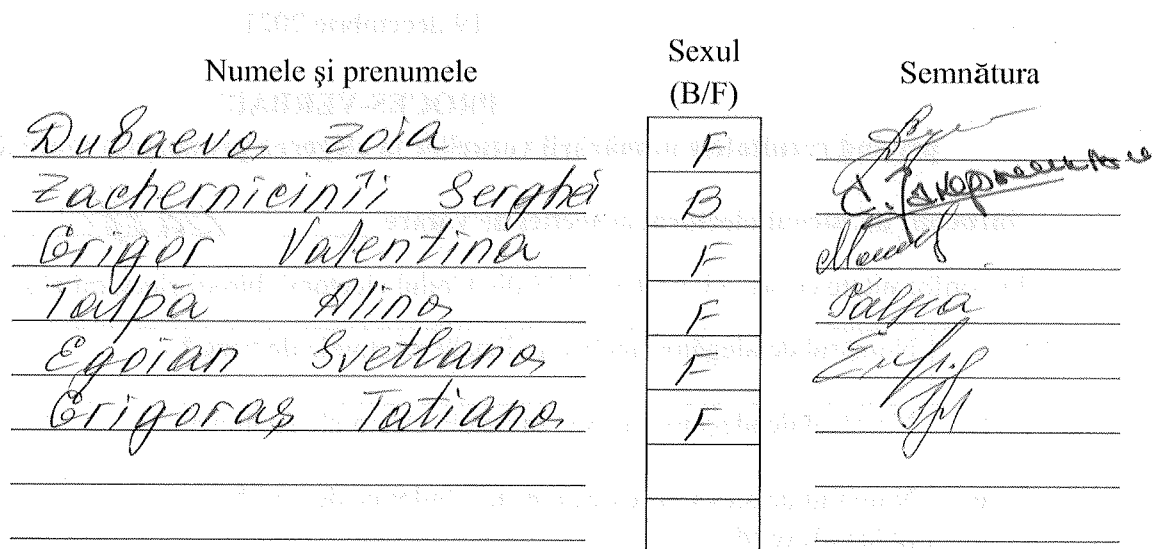 Numele şi prenumele Sexul (B/F) Semnătura
Dubaeva Zoia F
Zachernicinîi Serghei B
Grigor Valentina F
Talpă Alina F Talpa
Egoian Svetlana F
Grigoraş Tatiana F